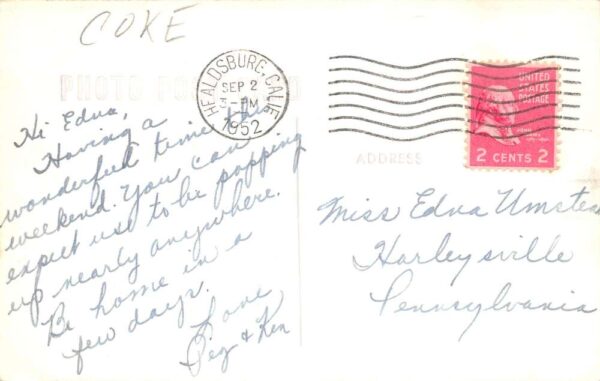 COKE
PHOTO POST CARD
HEALDSBURG, CALIF.
SEP 2
3-PM
1952
UNITED
STATES
POSTAGE
2 CENTS 2
ADDRESS
Hi Edna,
Having a
wonderful time this
weekend. You can
expect us to be popping
up nearly anywhere.
Be home in a
few days.
Love
Peg & Ken
Miss Edna Umstead
Harleysville
Pennsylvania